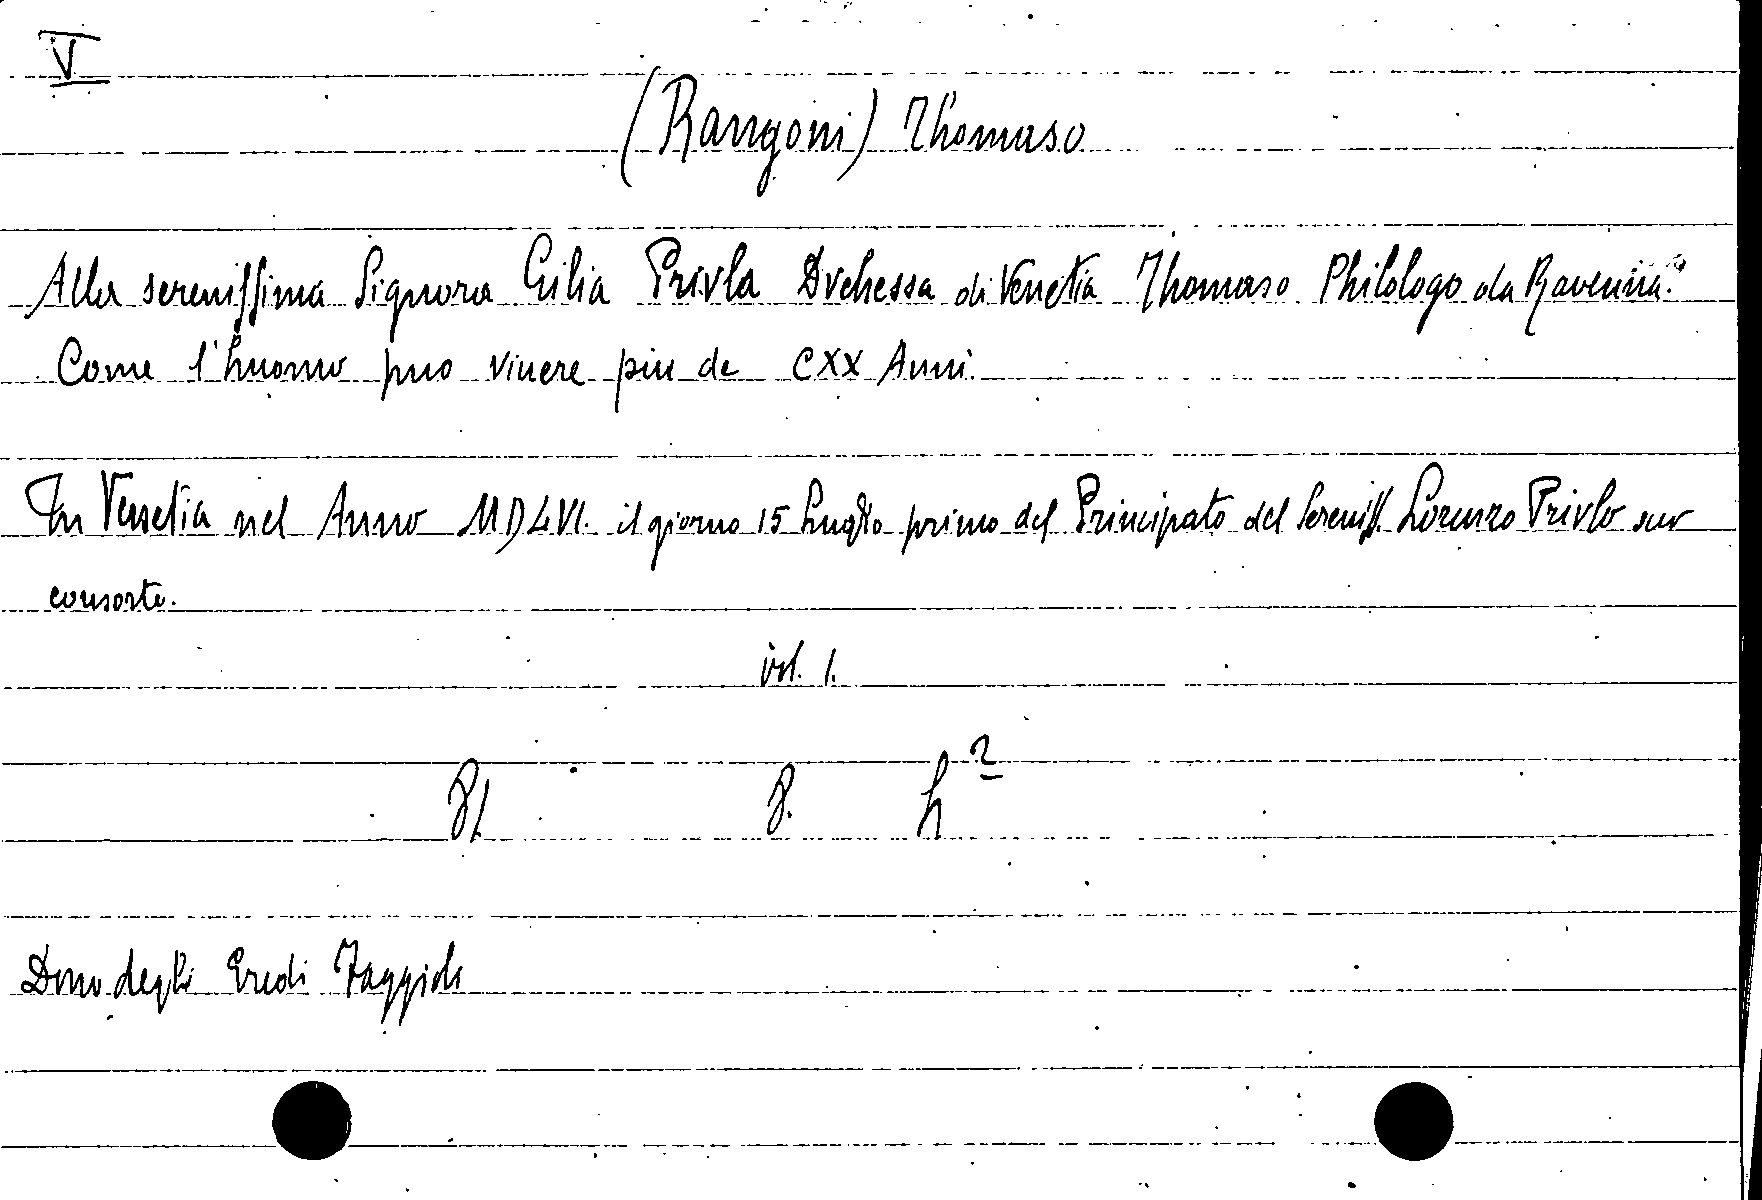 V
(Rangoni) Thomaso
Alla serenissima Signora Cilia Privla Dvchessa di Venetia Thomaso Philologo da Ravenna.
Come l'huomo puo viuere piu de CXX Anni.
In Venetia nel Anno MDLVI. il giorno 15 Luglio primo del Principato del Sereniss. Lorenzo Privlo suo
consorte.
vol. 1.
8. h²
Dono degli Eredi Faggioli